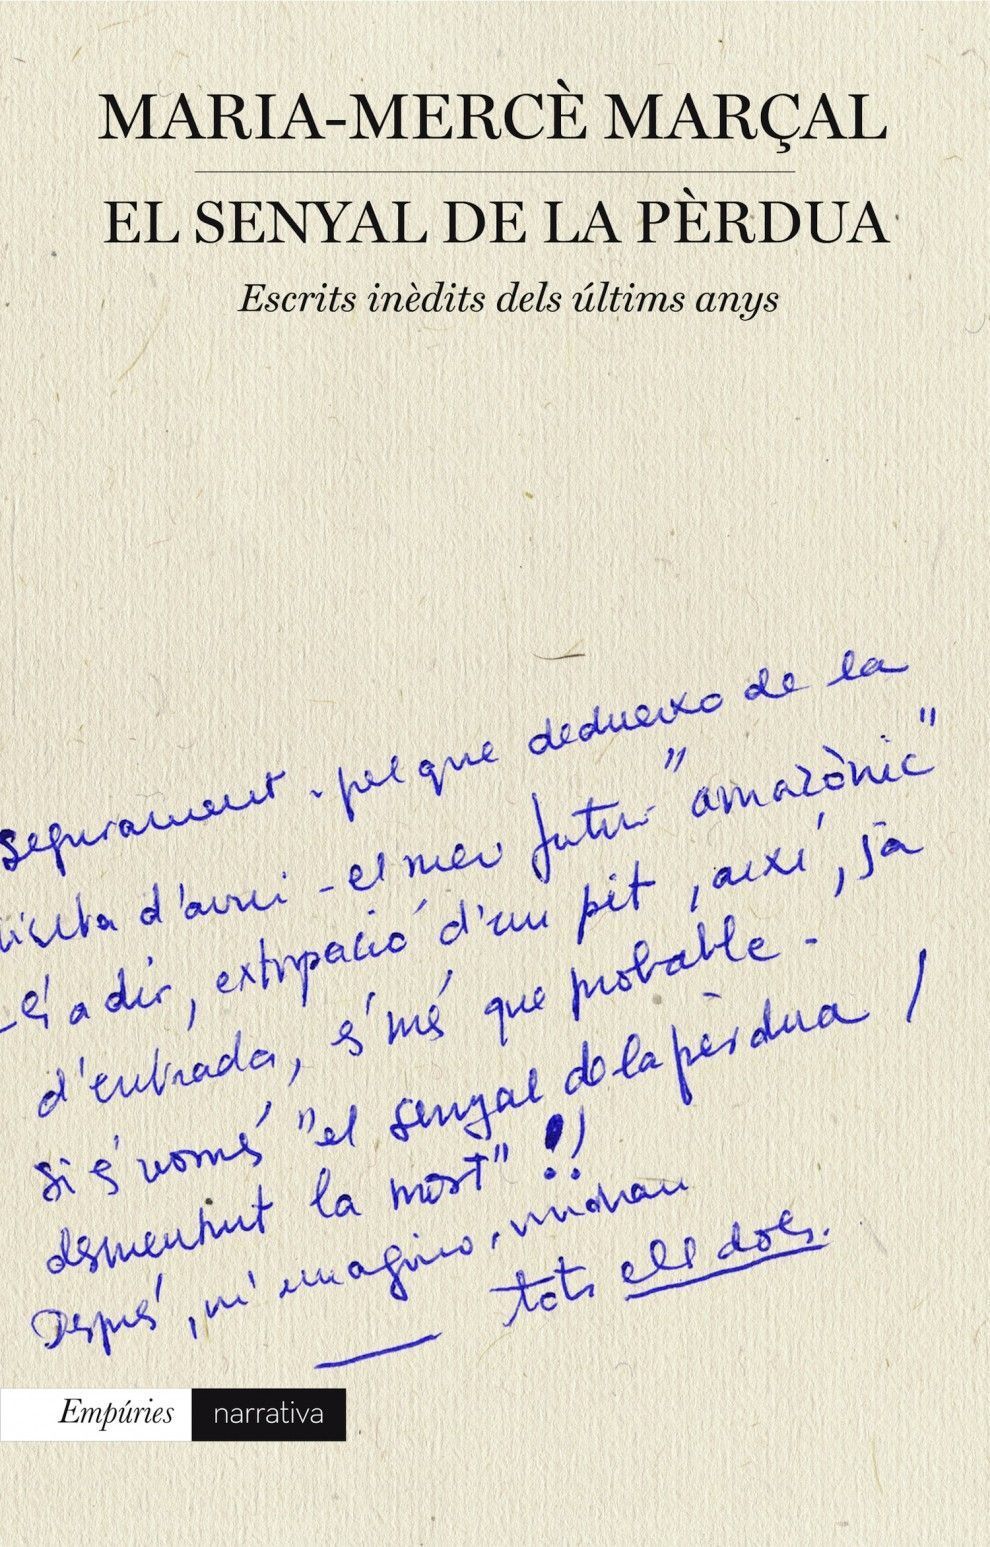 MARIA-MERCÈ MARÇAL
EL SENYAL DE LA PÈRDUA
Escrits inèdits dels últims anys
Segurament - pel que dedueixo de la
visita d'avui - el meu futur "amazònic"
- és a dir, extirpació d'un pit, així, ja
d'entrada, és més que probable -
si és només "el senyal de la pèrdua /
desmentint la mort" !!
Després, m'imagino, vindran
tots els dols.
Empúries narrativa